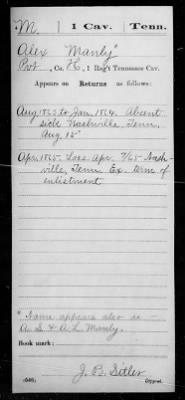 M. 1 Cav. Tenn.
Alex Manly*
Pvt, Co. H, 1 Reg't Tennessee Cav.
Appears on
Returns as follows:
Aug. 1863 to Jan. 1864. Absent
sick Nashville Tenn.
Aug 15"
Apr. 1865. Loss Apr. 7/65 Nash-
ville, Tenn Ex. term of
enlistment
* Name appears also as —
A. S. & A. L. Manly.
Book mark:
J. B. Sitler
(546) Copyist.